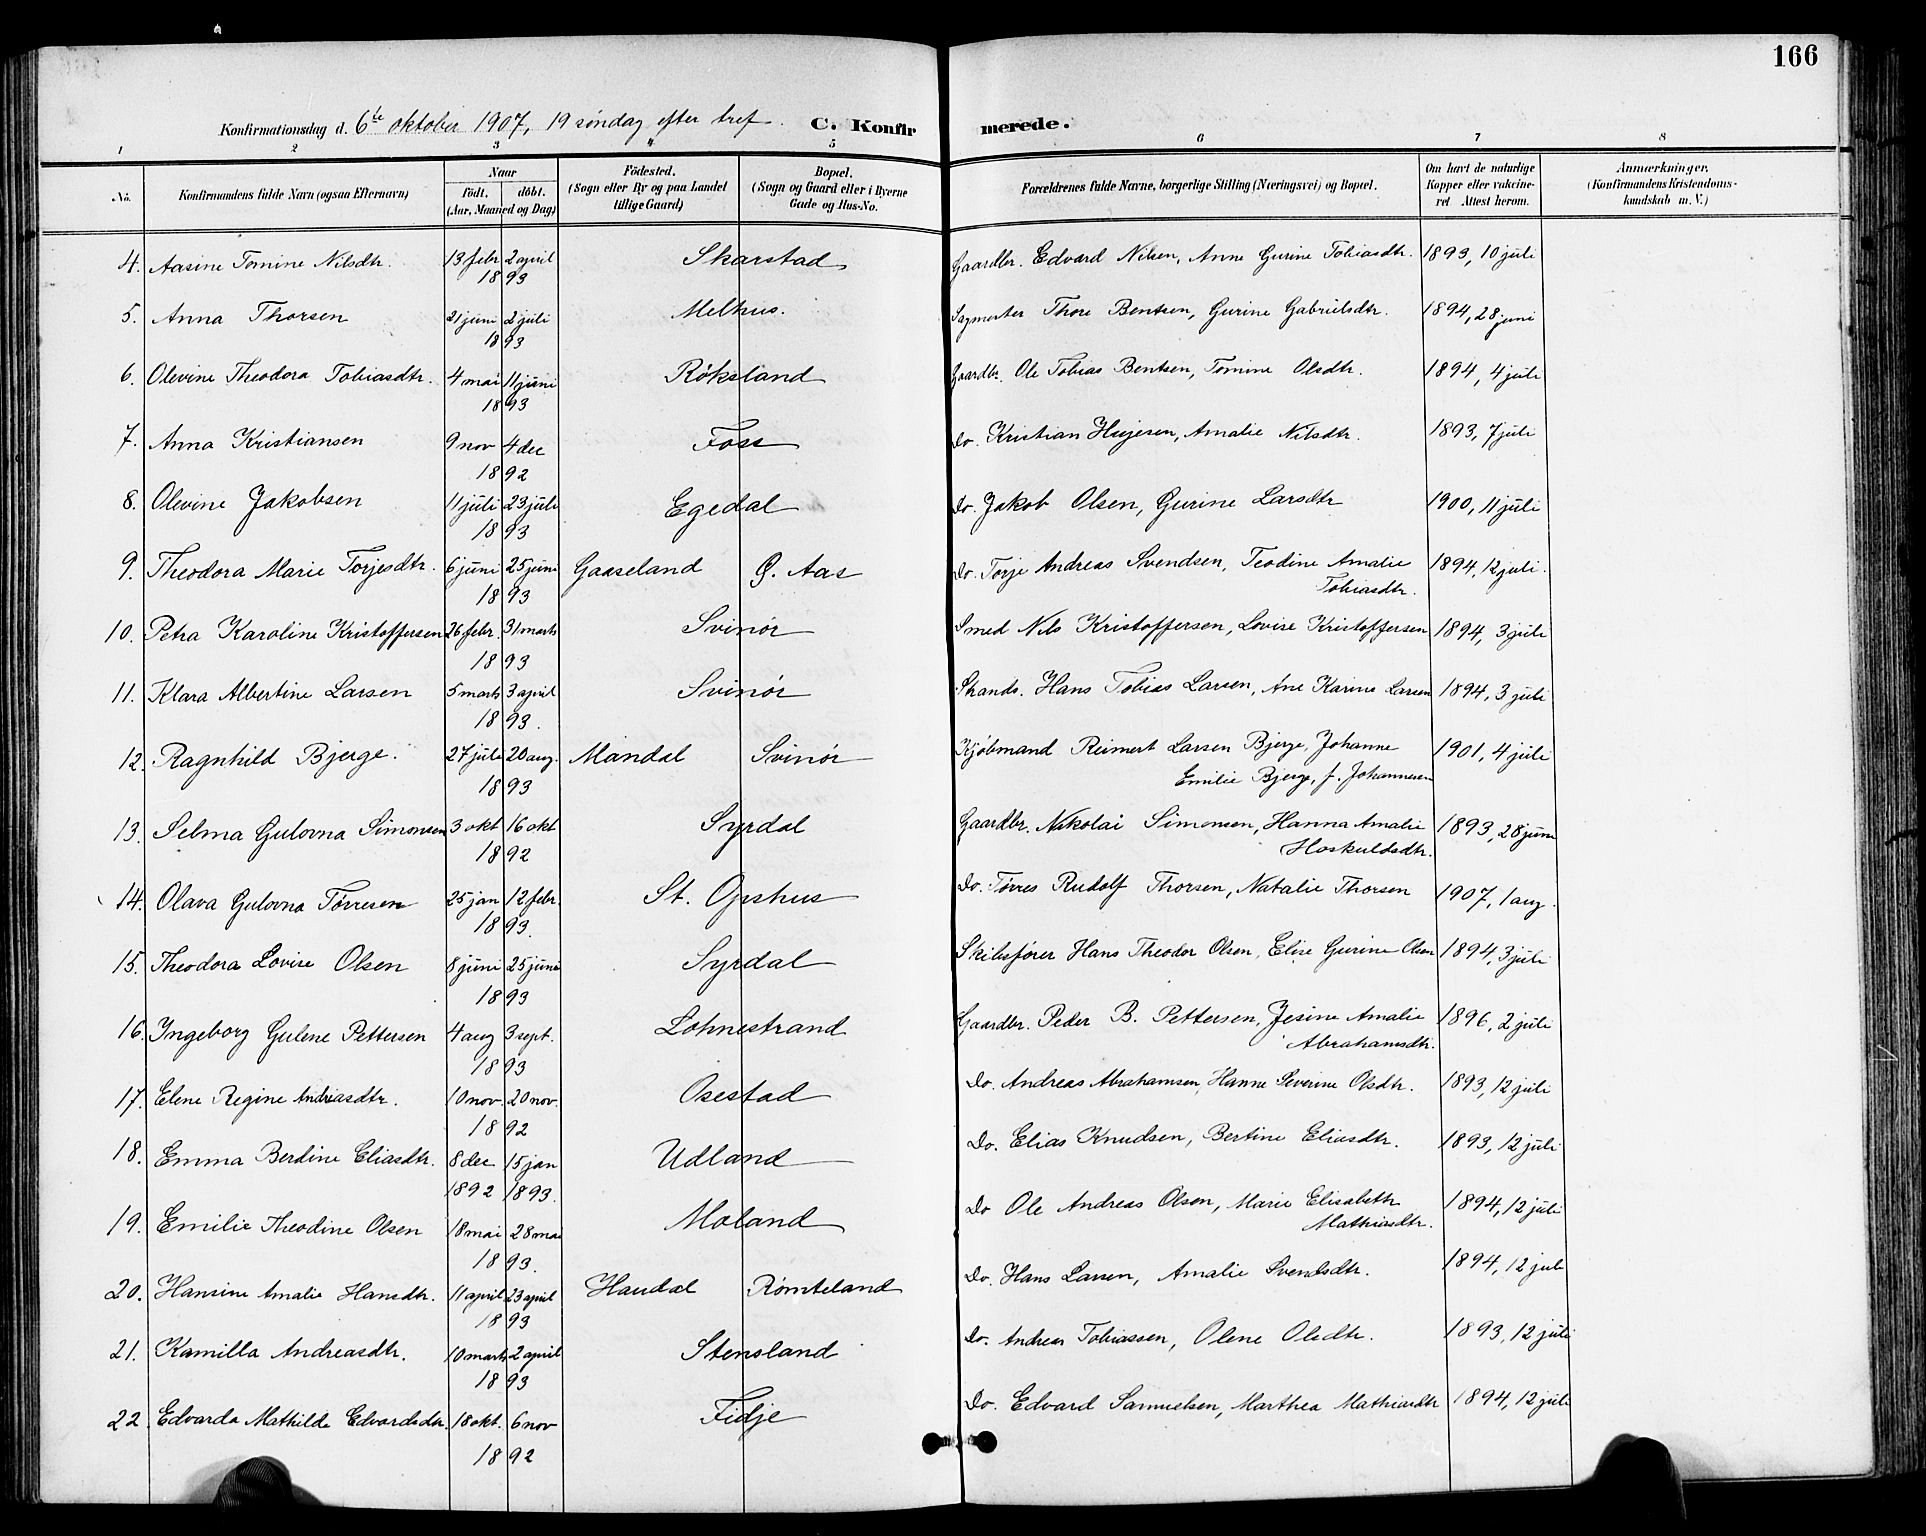 166
Konfirmationsdag d. 6te oktober 1907, 19 søndag efter tref. C. Konfirmerede.
1 2 3 4 5 6 7 8
No. Konfirmandens fulde Navn (ogsaa Efternavn) Naar født. døbt. (Aar, Maaned og Dag) Fødested. (Sogn eller By og paa Landet tillige Gaard) Bopæl. (Sogn og Gaard eller i Byerne Gade og Hus-No. Forældrenes fulde Navne, borgerlige Stilling (Næringsvei) og Bopæl. Om havt de naturlige Kopper eller vakcineret. Attest herom. Anmærkninger. (Konfirmandens Kristendomskundskab m. V.)
4. Aasine Tomine Nilsdtr. 13 febr 2 april Skarstad Gaardbr. Edvard Nilsen, Anne Gurine Tobiasdtr. 1893, 10 juli
1893
5. Anna Thorsen 21 juni 2 juli Melhus. Sagmester Thore Bentsen, Gurine Gabrielsdtr. 1894, 28 juni
1893
6. Olevine Theodora Tobiasdtr. 4 mai 11 juni Røksland Gaardbr. Ole Tobias Bentsen, Tomine Olsdtr. 1894, 4 juli
1893
7. Anna Kristiansen 9 nov 4 dec Foss Do. Kristian Amalie Nilsdtr. 1893, 7 juli
1892
8. Olevine Jakobsen 11 juli 23 juli Egedal Do. Jakob Olsen, Gurine Larsdtr 1900, 11 juli
1893
9. Theodora Marie Torjesdtr. 6 juni 25 juni Gaaseland G. Aas Do. Torje Andreas Svendsen, Teodine Amalie 1894, 12 juli.
1893 Tobiasdtr.
10. Petra Karoline Kristoffersen 26 febr. 31 marts Svinør Smed Nils Kristoffersen, Lovise Kristoffersen 1894, 3 juli
1893
11. Klara Albertine Larsen 5 marts 3 april Svinør Strands. Hans Tobias Larsen, Ane Karine Larsen 1894, 3 juli
1893.
12. Ragnhild Bjerge. 27 juli 20 aug. Mandal Svinør Kjøbmand Reimert Larsen Bjerge, Johanne 1901, 4 juli
1893 Emilie Bjerge, f. Johannesen
13. Selma Gulovna Simonsen 3 okt 16 okt Syrdal Gaardbr. Nikolai Simonsen, Hanna Amalie 1893, 28 juni
1892 Hoskuldsdtr.
14. Olava Gulovna Tørresen 25 jan 12 febr. St. Opshus Do. Tørres Rudolf Thorsen, Natalie Thorsen 1907, 1 aug.
1893.
15. Theodora Lovise Olsen 8 juni 25 juni Syrdal Skibsfører Hans Theodor Olsen, Elise Gurine Olsen 1894, 3 juli
1893
16. Ingeborg Gulene Pettersen 4 aug 3 sept. Lohnestrand Gaardbr. Peder B. Pettersen, Jesine Amalie 1896, 2 juli
1893 Abrahamsdtr.
17. Elene Regine Andreasdtr. 10 nov. 20 nov. Osestad Do. Andreas Abrahamsen, Hanne Severine Olsdtr. 1893, 12 juli
1892
18. Emma Berdine Eliasdtr. 8 dec 15 jan Udland Do. Elias Knudsen, Bertine Eliasdtr. 1893, 12 juli
1892 1893.
19. Emilie Theodine Olsen 18 mai 28 mai Moland Do Ole Andreas Olsen, Marie Elisabeth 1894, 12 juli
1893. Mathiasdtr.
20. Hansine Amalie Hansdtr. 11 april 23 april Haudal Rømteland Do. Hans Larsen, Amalie Svendsdtr. 1894, 12 juli
1893
21. Kamilla Andreasdtr. 10 marts 2 april Stensland Do. Andreas Tobiassen, Olene Olsdtr. 1893, 12 juli
1893
22. Edvarda Mathilde Edvardsdtr. 18 okt. 6 nov Fidje Do. Edvard Samuelsen, Marthea Mathiasdtr 1894, 12 juli
1892